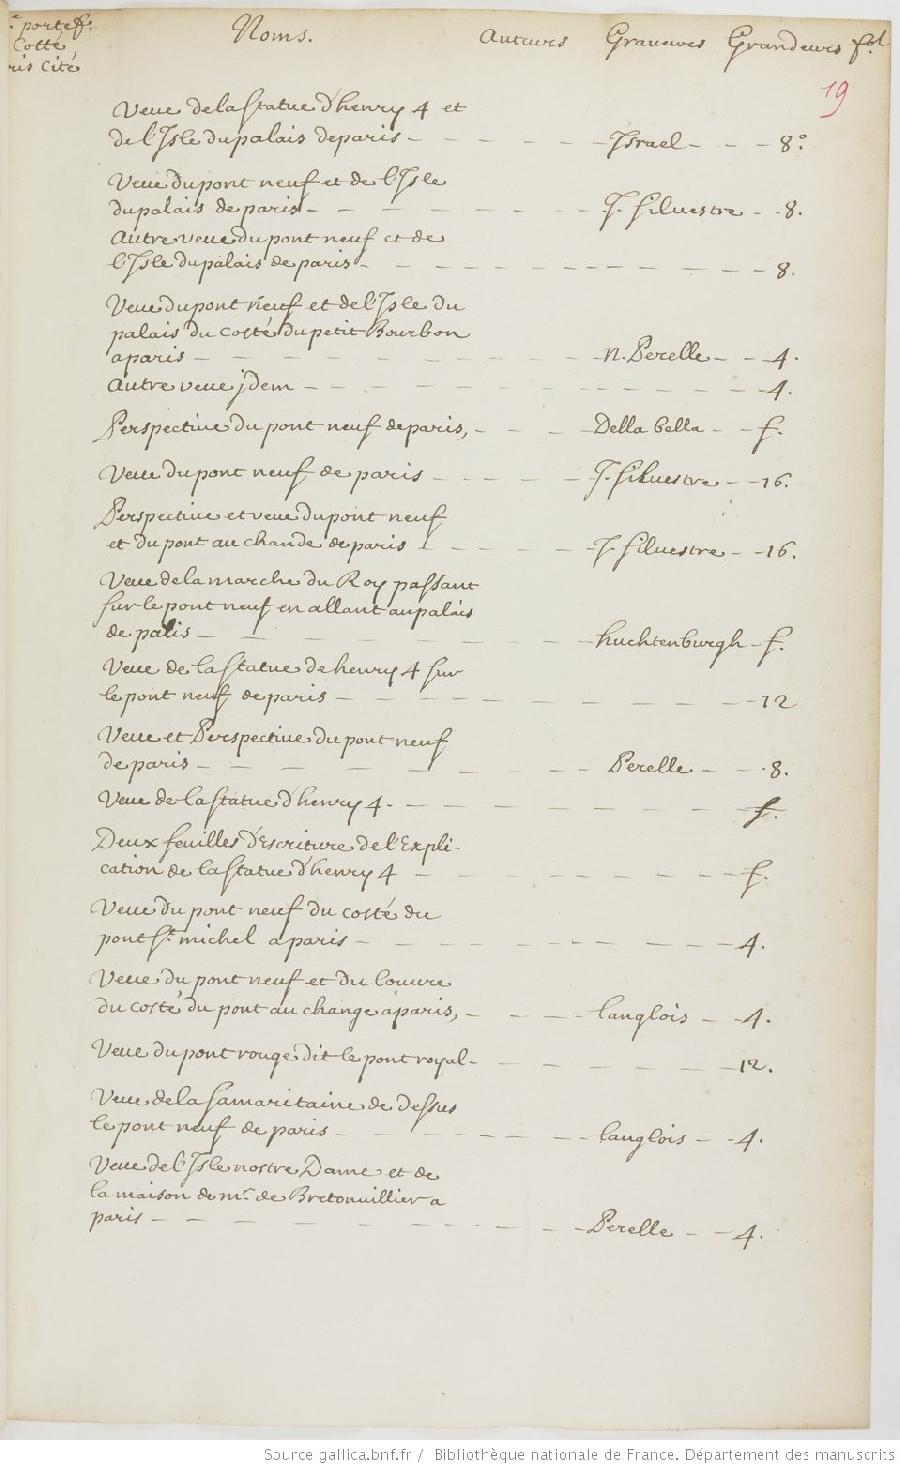 e portef. Noms. Auteurs Graveures Grandeurs fol.
Cotté
ris Cité
19
Veue de la statue d'henry 4 et
de l'Isle du palais de paris - - - - - - Israel - - - 8.°
Veue du pont neuf et de l'Isle
du palais de paris - - - - - - J. Silvestre - - 8.
Autre veue du pont neuf et de
l'Isle du palais de paris - - - - - - 8.
Veue du pont neuf et de l'Isle du
palais du costé du petit Bourbon
a paris - - - - - - n. Perelle - - 4.
Autre veue jdem - - - - - - 4.
Perspective du pont neuf de paris, - - - Della bella - - f.
Veue du pont neuf de paris - - - - J. Silvestre - - 16.
Perspective et veue du pont neuf
et du pont au chande de paris - - - - J. Silvestre - - 16.
Veue de la marche du Roy passant
sur le pont neuf en allant au palais
de paris - - - - - - huchtenburgh - f.
Veue de la statue de henry 4 sur
le pont neuf de paris - - - - - - 12
Veue et Perspective du pont neuf
de paris - - - - - - Perelle - - 8.
Veue de la statue d'henry 4. - - - - - - f.
Deux feuilles d'Escriture de l'Expli-
cation de la statue d'henry 4 - - - - - - f.
Veue du pont neuf du costé du
pont St. michel a paris - - - - - - 4.
Veue du pont neuf et du louvre
du costé du pont au change a paris, - - - - langlois - - 4.
Veue du pont rouge dit le pont royal - - - - - - 12.
Veue de la Samaritaine de dessus
le pont neuf de paris - - - - - - langlois - - 4.
Veue de l'Isle nostre Dame et de
la maison de mr. de Bretonvillier a
paris - - - - - - Perelle - - 4.
Source gallica.bnf.fr / Bibliothèque nationale de France. Département des manuscrits